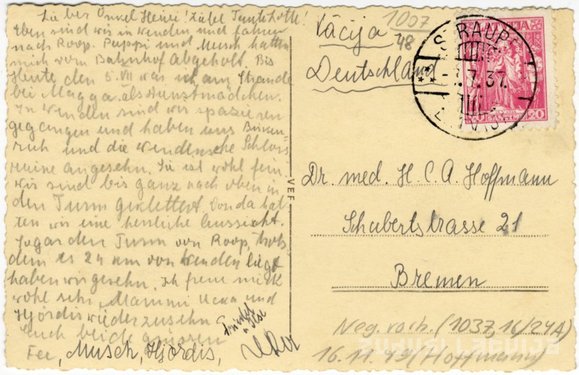 Lieber Onkel Heini! Liebe Tante Lotte!
Eben sind wir in Wenden und fahren
nach Roop. Puppi und Musch hatten
mich vom Bahnhof abgeholt. Bis
Heute den 5. VII war ich am Strande
bei Magga als Kunstmädchen.
In Wenden sind wir spazieren
gegangen und haben uns
und die Wendensche Schloss
ruine angesehn. Sie ist wohl fein
wir sind bis ganz nach oben in
den Turm geklettert. Von da hat
ten wir eine herrliche Aussicht.
Sogar den Turm von Roop, trotz
dem es 24 km von Wenden liegt
haben wir gesehn. Ich freue mich
wohl sehr, Mammi und
Hjördis wiederzusehn.
Euch beide grüssen
Fee, Musch, Hjördis,
Vācija
Deutschland
1007
48
STRAUPE
7. 37.
LATVIJA
20
VEF
Dr. med. H. C. A. Hoffmann
Schubertstrasse 21
Bremen
Neg. vorh. (1037, 16/24A)
16. 11. 43 (Hoffmann)